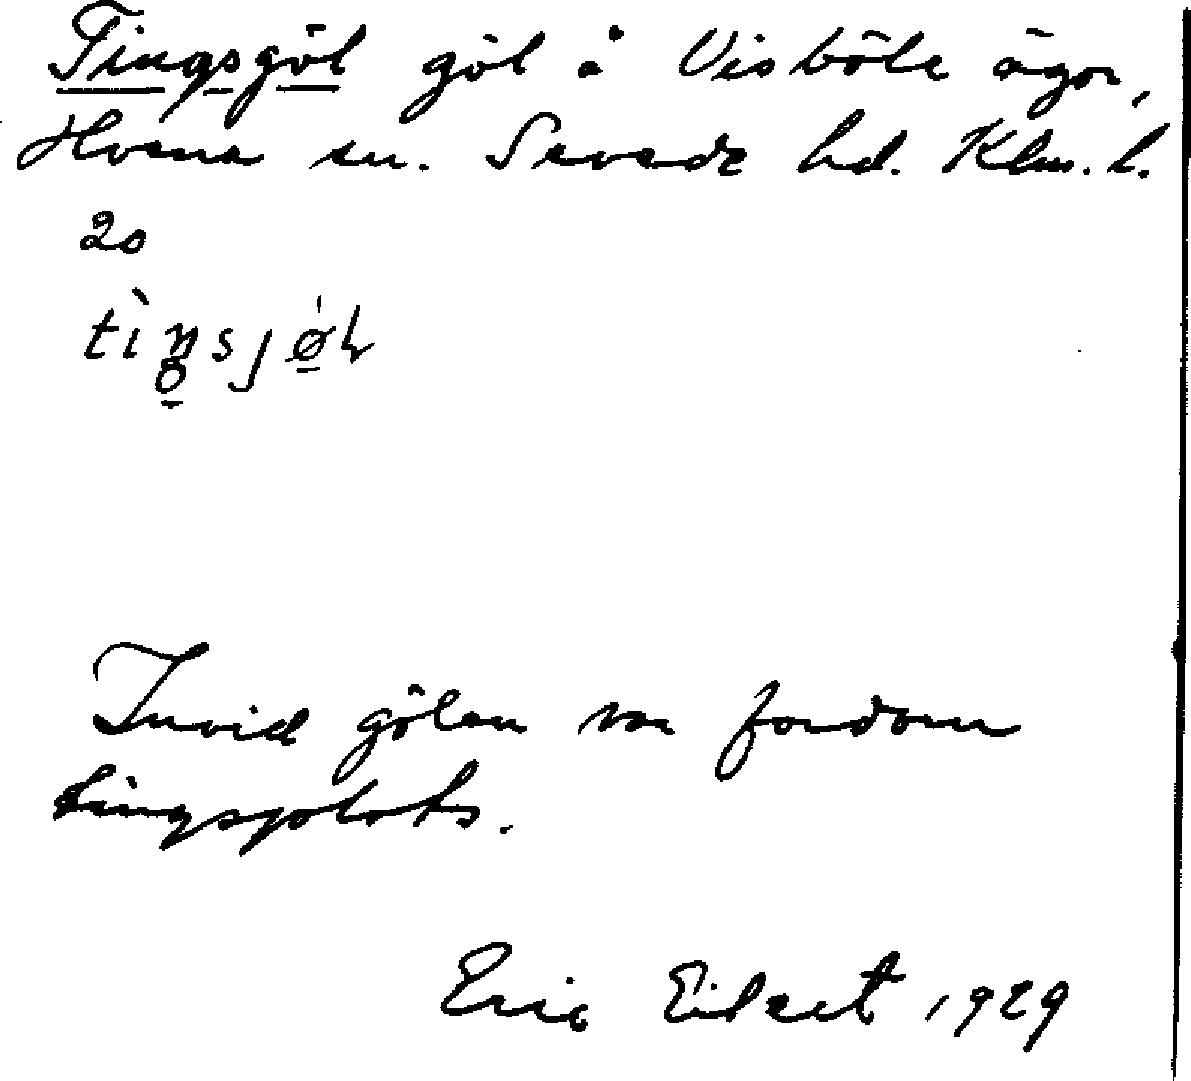 Tingsgöl göl å Visböle ägor,
Hvena sn. Sevede hd. Klm. l.
20
tìŋsjø̀ɫ
Invid gölen var fordom
tingsplats.
Eric Eilert 1929